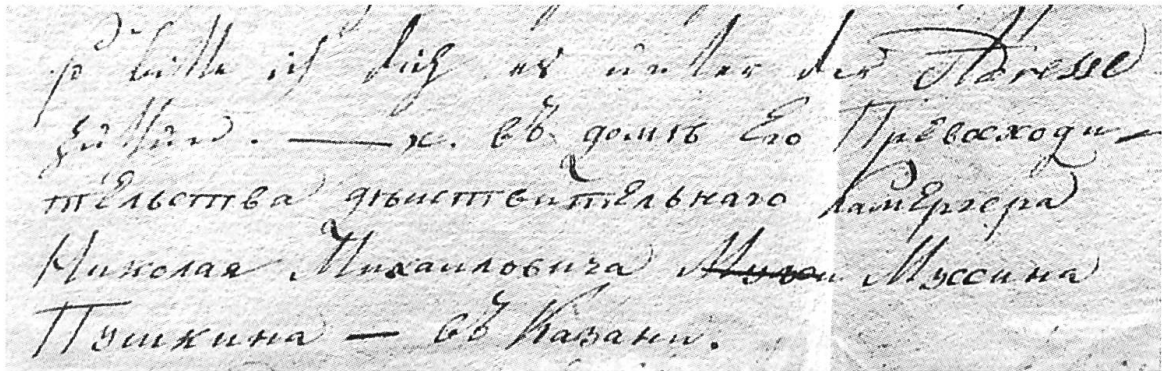 so bitte ich dich es unter der Adresse
zu thun. — x. въ домѣ Его Превосходи—
тельства дѣиствительнаго Камергера
Николая Михаиловича Мусси Муссина
Пушкина — въ Казани.